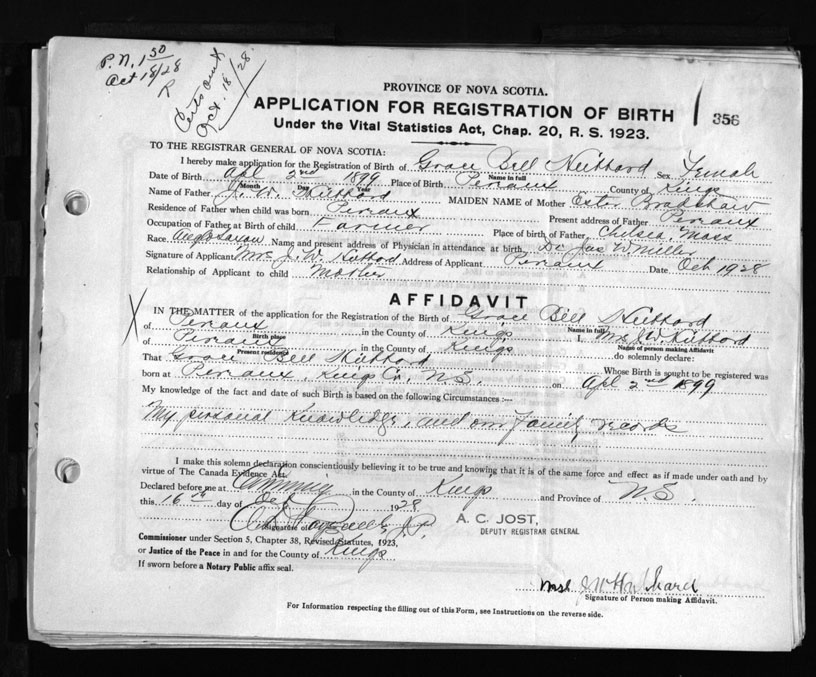 P.N. 1 50
Oct 18/28
R
Certs out
Oct. 18/28.
PROVINCE OF NOVA SCOTIA.
APPLICATION FOR REGISTRATION OF BIRTH
356
Under the Vital Statistics Act, Chap. 20, R. S. 1923.
TO THE REGISTRAR GENERAL OF NOVA SCOTIA:
I hereby make application for the Registration of Birth of Grace Bell Hubbard Sex Female
Name in full
Date of Birth Apl 2nd 1899 Place of Birth Pereaux County of Kings
Month Day Year
Name of Father J. W. Hubbard MAIDEN NAME of Mother Ester Bradshaw
Residence of Father when child was born Pereaux Present address of Father Pereaux
Occupation of Father at Birth of child Farmer Place of birth of Father Chelsea, Mass
Race Anglo Saxon Name and present address of Physician in attendance at birth Dr Jas W Miller
Signature of Applicant Mrs J. W. Hubbard Address of Applicant Pereaux Date Oct 1928
Relationship of Applicant to child Mother
AFFIDAVIT
IN THE MATTER of the application for the Registration of the Birth of Grace Bell Hubbard
Name in full
of Pereaux in the County of King's I, Mrs J. W. Hubbard
Birth place Name of person making Affidavit
of Pereaux in the County of King's do solemnly declare:
Present residence
That Grace Bell Hubbard Whose Birth is sought to be registered was
born at Pereaux, Kings Co, N.S. on Apl 2nd 1899
My knowledge of the fact and date of such Birth is based on the following Circumstances :—
My personal Knowledge, and our Family records
I make this solemn declaration conscientiously believing it to be true and knowing that it is of the same force and effect as if made under oath and by
virtue of The Canada Evidence Act.
Declared before me at Canning in the County of Kings and Province of N.S.
this 16th day of Oct 1928
A. C. JOST,
DEPUTY REGISTRAR GENERAL
Signature of J.P.
Commissioner under Section 5, Chapter 38, Revised Statutes, 1923,
or Justice of the Peace in and for the County of Kings
If sworn before a Notary Public affix seal.
Mrs J W Hubbard
Signature of Person making Affidavit.
For Information respecting the filling out of this Form, see Instructions on the reverse side.